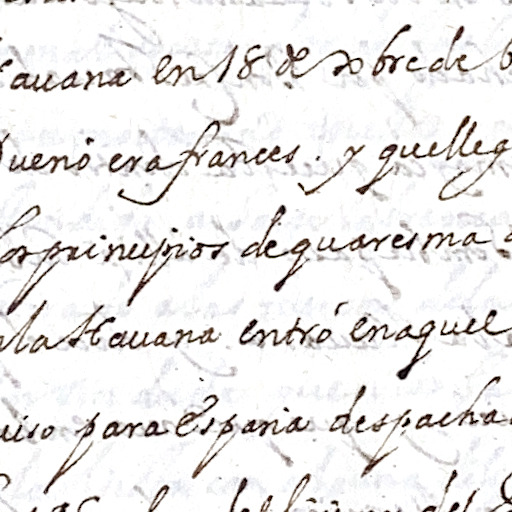 avana en 18 de xbre de
era frances. y que lleg
principios de quaresma
la Havana entró en aquel
para España despacha